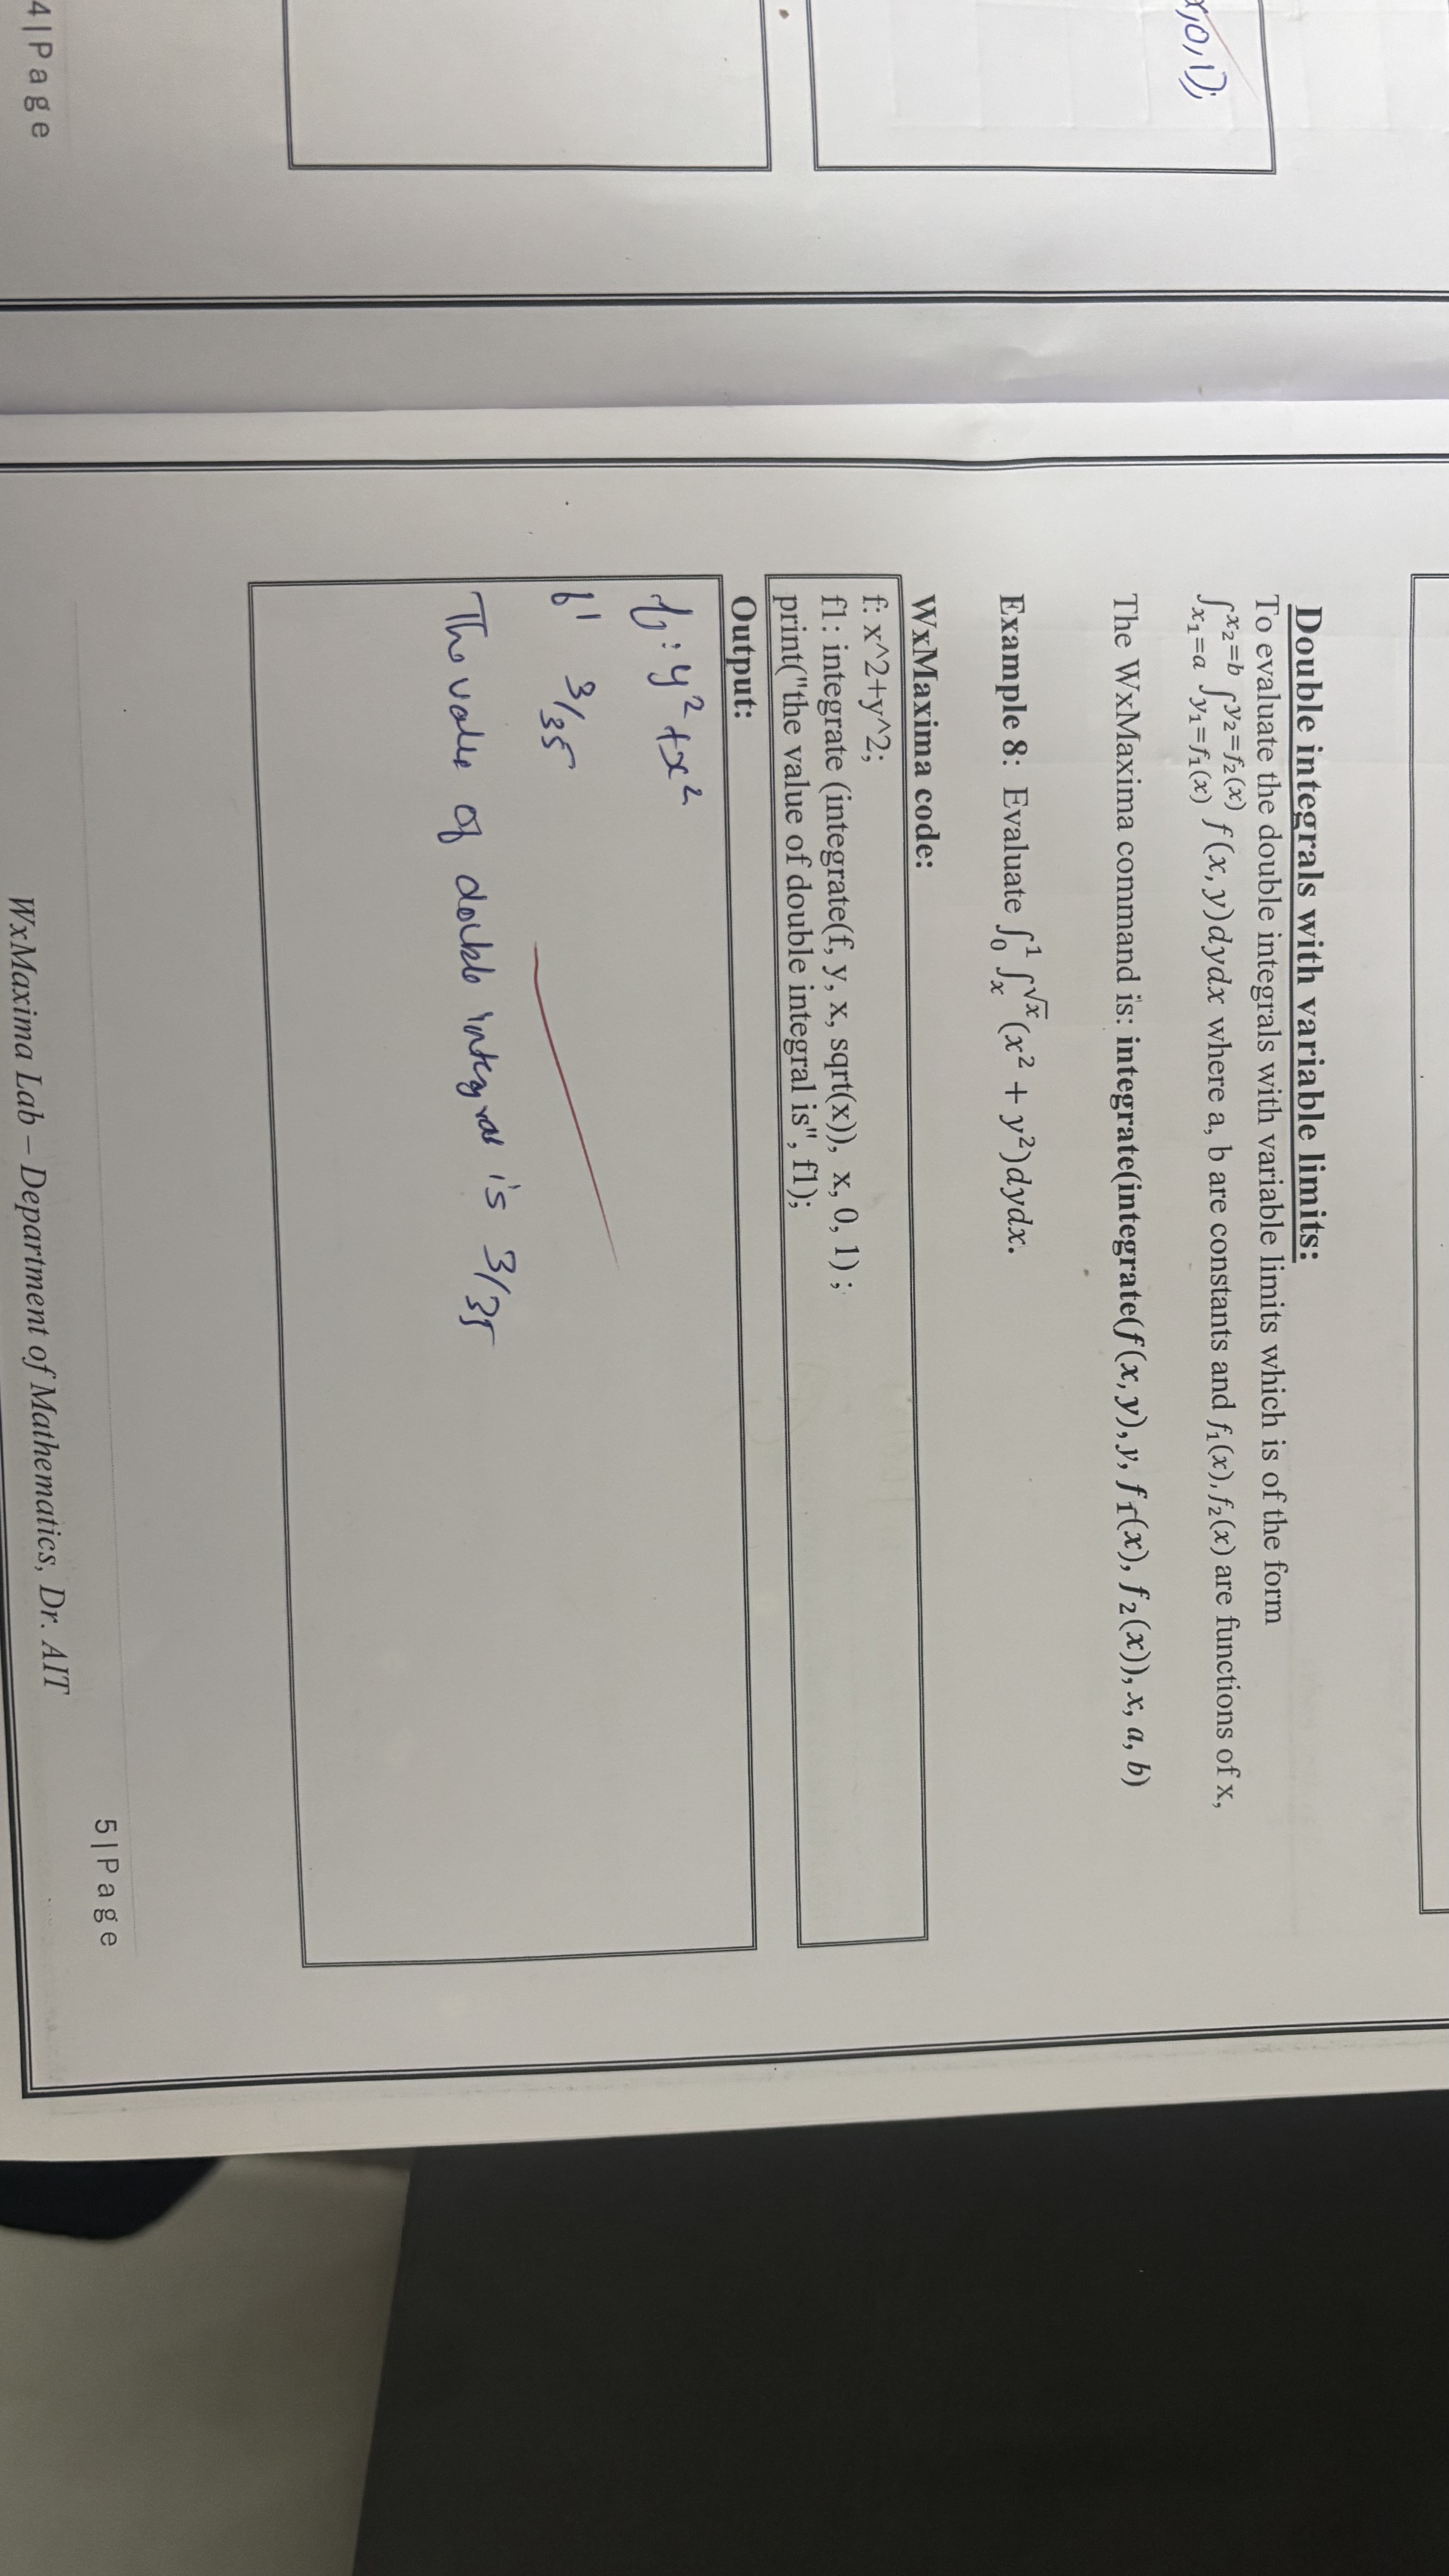 x,0,1);
4 | P a g e
Double integrals with variable limits:
To evaluate the double integrals with variable limits which is of the form
∫_{x₁=a}^{x₂=b} ∫_{y₁=f₁(x)}^{y₂=f₂(x)} f(x, y)dydx where a, b are constants and f₁(x), f₂(x) are functions of x,
The WxMaxima command is: integrate(integrate(f(x, y), y, f₁(x), f₂(x)), x, a, b)
Example 8: Evaluate ∫₀¹ ∫ₓ^√x (x² + y²)dydx.
WxMaxima code:
f: x^2+y^2;
f1: integrate (integrate(f, y, x, sqrt(x)), x, 0, 1) ;
print("the value of double integral is", f1);
Output:
y² + x²
3/35
The value of double integral is 3/35
5 | P a g e
WxMaxima Lab – Department of Mathematics, Dr. AIT